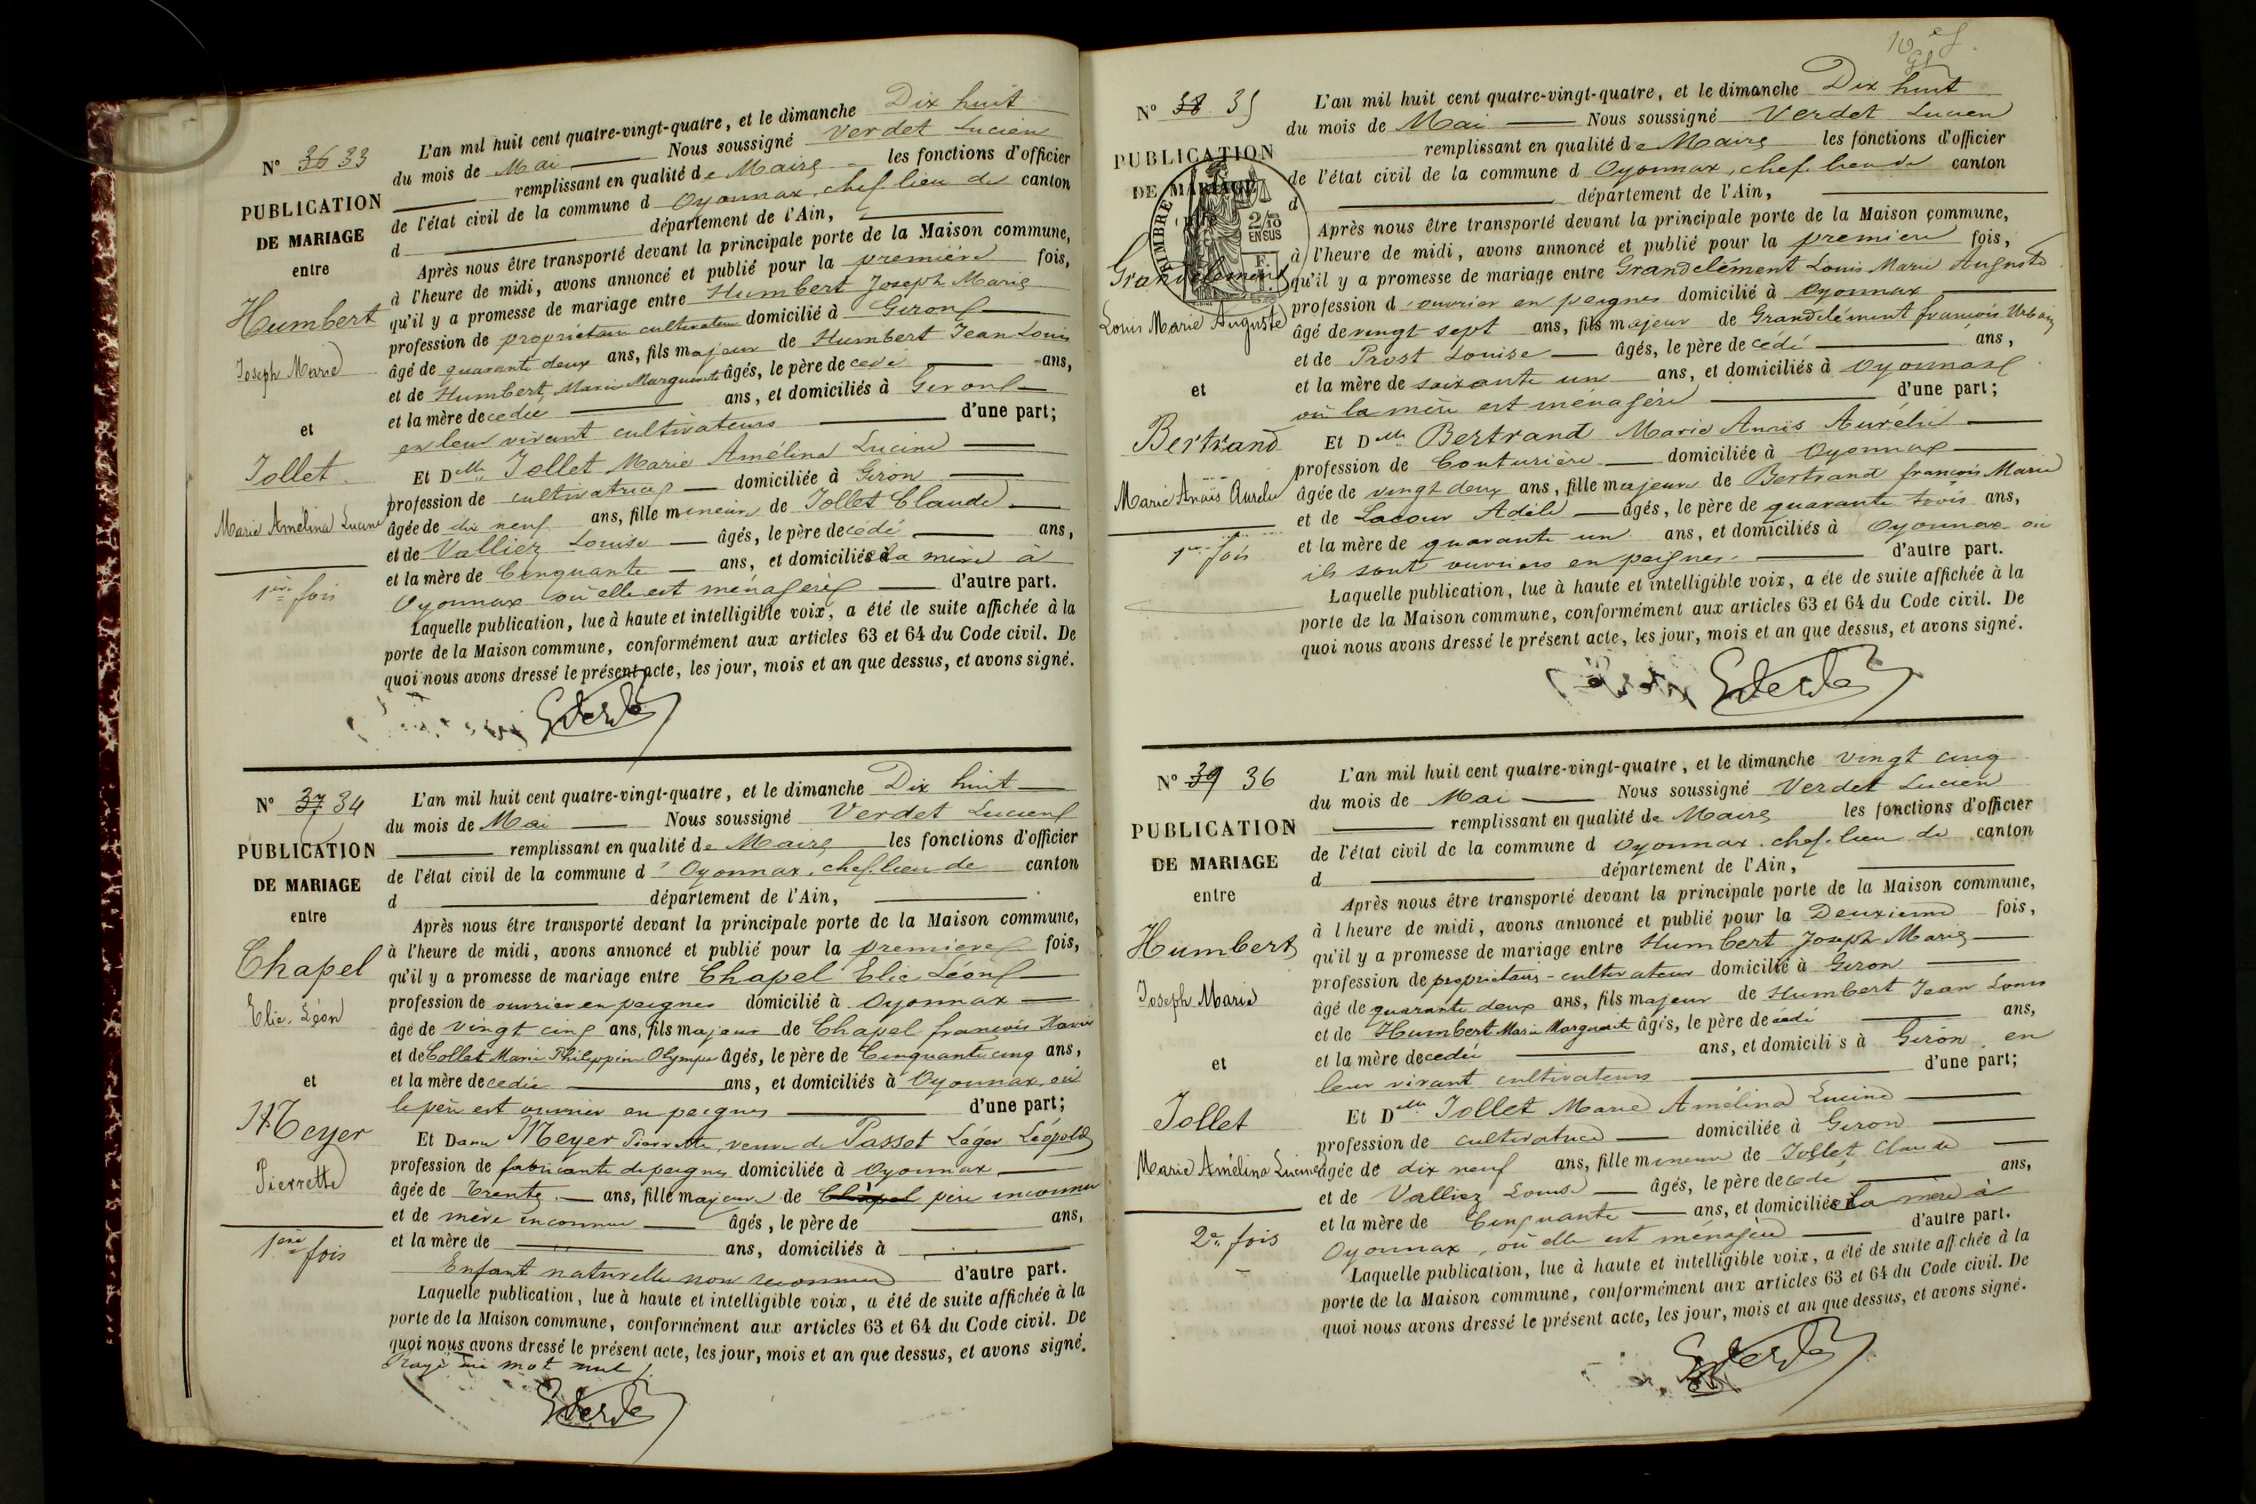 N° 36 33
PUBLICATION
DE MARIAGE
entre
Humbert
Joseph Marie
et
Jollet
Marie Amélina Lucine
1ère fois
L'an mil huit cent quatre-vingt-quatre, et le dimanche Dix huit
du mois de Mai Nous soussigné Verdet Lucien
remplissant en qualité de Maire les fonctions d'officier
de l'état civil de la commune d Oyonnax, chef lieu de canton
d département de l'Ain,
Après nous être transporté devant la principale porte de la Maison commune,
à l'heure de midi, avons annoncé et publié pour la première fois,
qu'il y a promesse de mariage entre Humbert Joseph Marie
profession de propriétaire cultivateur domicilié à Giron
âgé de quarante deux ans, fils majeur de Humbert Jean Louis
et de Humbert, Marie Marguerite âgés, le père decédé ans,
et la mère decedée ans, et domiciliés à Giron
en leur vivant cultivateurs d'une part;
Et Dlle Jollet Marie Amélina Lucine
profession de cultivatrice domiciliée à Giron
âgée de dix neuf ans, fille mineure de Jollet Claude
et de Valliez Louise âgés, le père decédé ans,
et la mère de Cinquante ans, et domiciliés à La mère à
Oyonnax où elle est ménagère d'autre part.
Laquelle publication, lue à haute et intelligible voix, a été de suite affichée à la
porte de la Maison commune, conformément aux articles 63 et 64 du Code civil. De
quoi nous avons dressé le présent acte, les jour, mois et an que dessus, et avons signé.
N° 37 34
PUBLICATION
DE MARIAGE
entre
Chapel
Elie Léon
et
Meyer
Pierrette
1ère fois
L'an mil huit cent quatre-vingt-quatre, et le dimanche Dix huit
du mois de Mai Nous soussigné Verdet Lucien
remplissant en qualité de Maire les fonctions d'officier
de l'état civil de la commune d' Oyonnax, chef lieu de canton
d département de l'Ain,
Après nous être transporté devant la principale porte de la Maison commune,
à l'heure de midi, avons annoncé et publié pour la premiere fois,
qu'il y a promesse de mariage entre Chapel Elie Léon
profession de ouvrier en peignes domicilié à Oyonnax
âgé de Vingt cinq ans, fils majeur de Chapel françois Xavier
et de Collet Marie Philippine Olympe âgés, le père de Cinquante cinq ans,
et la mère decedée ans, et domiciliés à Oyonnax, où
le père est ouvrier en peignes d'une part;
Et Dame Meyer Pierrette, veuve de Passot Léger Léopold
profession de fabricante de peignes domiciliée à Oyonnax
âgée de Trente ans, fille majeure de Chapel père inconnu
et de mère inconnue âgés, le père de ans,
et la mère de ans, domiciliés à
Enfant naturelle non reconnue d'autre part.
Laquelle publication, lue à haute et intelligible voix, a été de suite affichée à la
porte de la Maison commune, conformément aux articles 63 et 64 du Code civil. De
quoi nous avons dressé le présent acte, les jour, mois et an que dessus, et avons signé.
Rayé un mot nul
N° 38 35
PUBLICATION
DE MARIAGE
TIMBRE
2/10
EN SUS
Grandclément
Louis Marie Auguste
et
Bertrand
Marie Anaïs Aurélie
1re fois
L'an mil huit cent quatre-vingt-quatre, et le dimanche Dix huit
du mois de Mai Nous soussigné Verdet Lucien
remplissant en qualité de Maire les fonctions d'officier
de l'état civil de la commune d Oyonnax, chef-lieu de canton
d département de l'Ain,
Après nous être transporté devant la principale porte de la Maison commune,
à l'heure de midi, avons annoncé et publié pour la premiere fois,
qu'il y a promesse de mariage entre Grandclément Louis Marie Auguste
profession d'ouvrier en peignes domicilié à Oyonnax
âgé de vingt sept ans, fils majeur de Grandclément françois Urbain
et de Prost Louise âgés, le père decédé ans,
et la mère de soixante un ans, et domiciliés à Oyonnax
où la mère est ménagère d'une part;
Et Dlle Bertrand Marie Anaïs Aurélie
profession de Couturière domiciliée à Oyonnax
âgée de vingt deux ans, fille majeure de Bertrand françois Marie
et de Lacour Adèle âgés, le père de quarante trois ans,
et la mère de quarante un ans, et domiciliés à Oyonnax où
ils sont ouvriers en peignes. d'autre part.
Laquelle publication, lue à haute et intelligible voix, a été de suite affichée à la
porte de la Maison commune, conformément aux articles 63 et 64 du Code civil. De
quoi nous avons dressé le présent acte, les jour, mois et an que dessus, et avons signé.
N° 39 36
PUBLICATION
DE MARIAGE
entre
Humbert
Joseph Marie
et
Jollet
Marie Amélina Lucine
2e fois
L'an mil huit cent quatre-vingt-quatre, et le dimanche vingt cinq
du mois de Mai Nous soussigné Verdet Lucien
remplissant en qualité de Maire les fonctions d'officier
de l'état civil de la commune d Oyonnax, chef-lieu de canton
d département de l'Ain,
Après nous être transporté devant la principale porte de la Maison commune,
à l'heure de midi, avons annoncé et publié pour la Deuxieme fois,
qu'il y a promesse de mariage entre Humbert Joseph Marie
profession de propriétaire-cultivateur domicilié à Giron
âgé de quarante deux ans, fils majeur de Humbert Jean Louis
et de Humbert Marie Marguerite âgés, le père decédé ans,
et la mère decedée ans, et domiciliés à Giron, en
leur vivant cultivateurs d'une part;
Et Delle Jollet Marie Amélina Lucine
profession de cultivatrice domiciliée à Giron
âgée de dix neuf ans, fille mineure de Jollet Claude
et de Valliez Louise âgés, le père decédé ans,
et la mère de Cinquante ans, et domiciliés à La mère à
Oyonnax, où elle est ménagère d'autre part.
Laquelle publication, lue à haute et intelligible voix, a été de suite affichée à la
porte de la Maison commune, conformément aux articles 63 et 64 du Code civil. De
quoi nous avons dressé le présent acte, les jour, mois et an que dessus, et avons signé.